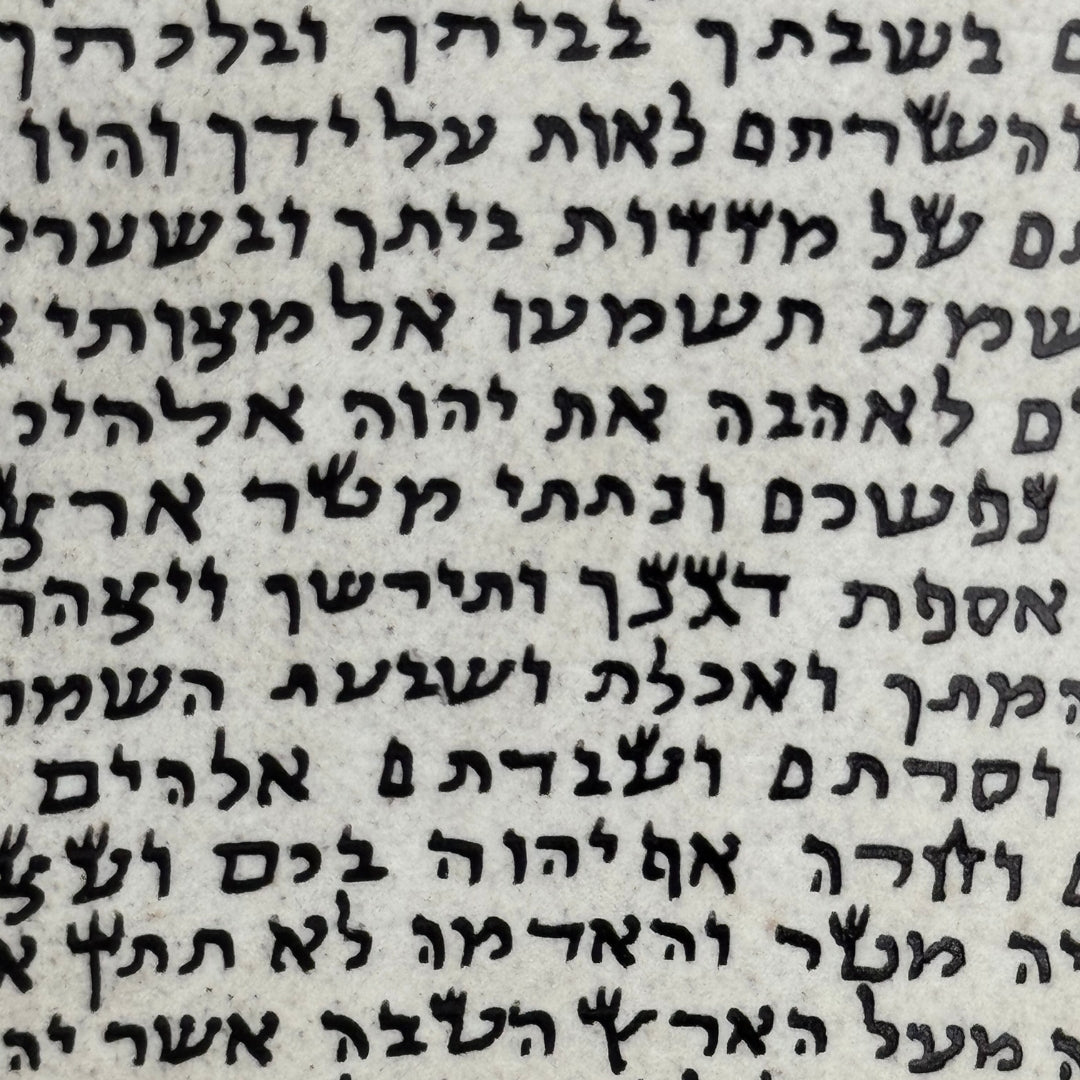 בשבתך בביתך ובלכתך
והשרתם לאות על ידך והיו
תם על מזזות ביתך ובשערי
שמע תשמעו אל מצותי
ים לאהבה את יהוה אלהיכ
נפשכם ונתתי מטר ארצ
אספת דגנך ותירשך ויצהר
המתך ואכלת ושבעת השמר
וסרתם ועבדתם אלהים
וחרה אף יהוה בכם ועצ
יה מטר והאדמה לא תתן א
ה מעל הארץ הטבה אשר יה